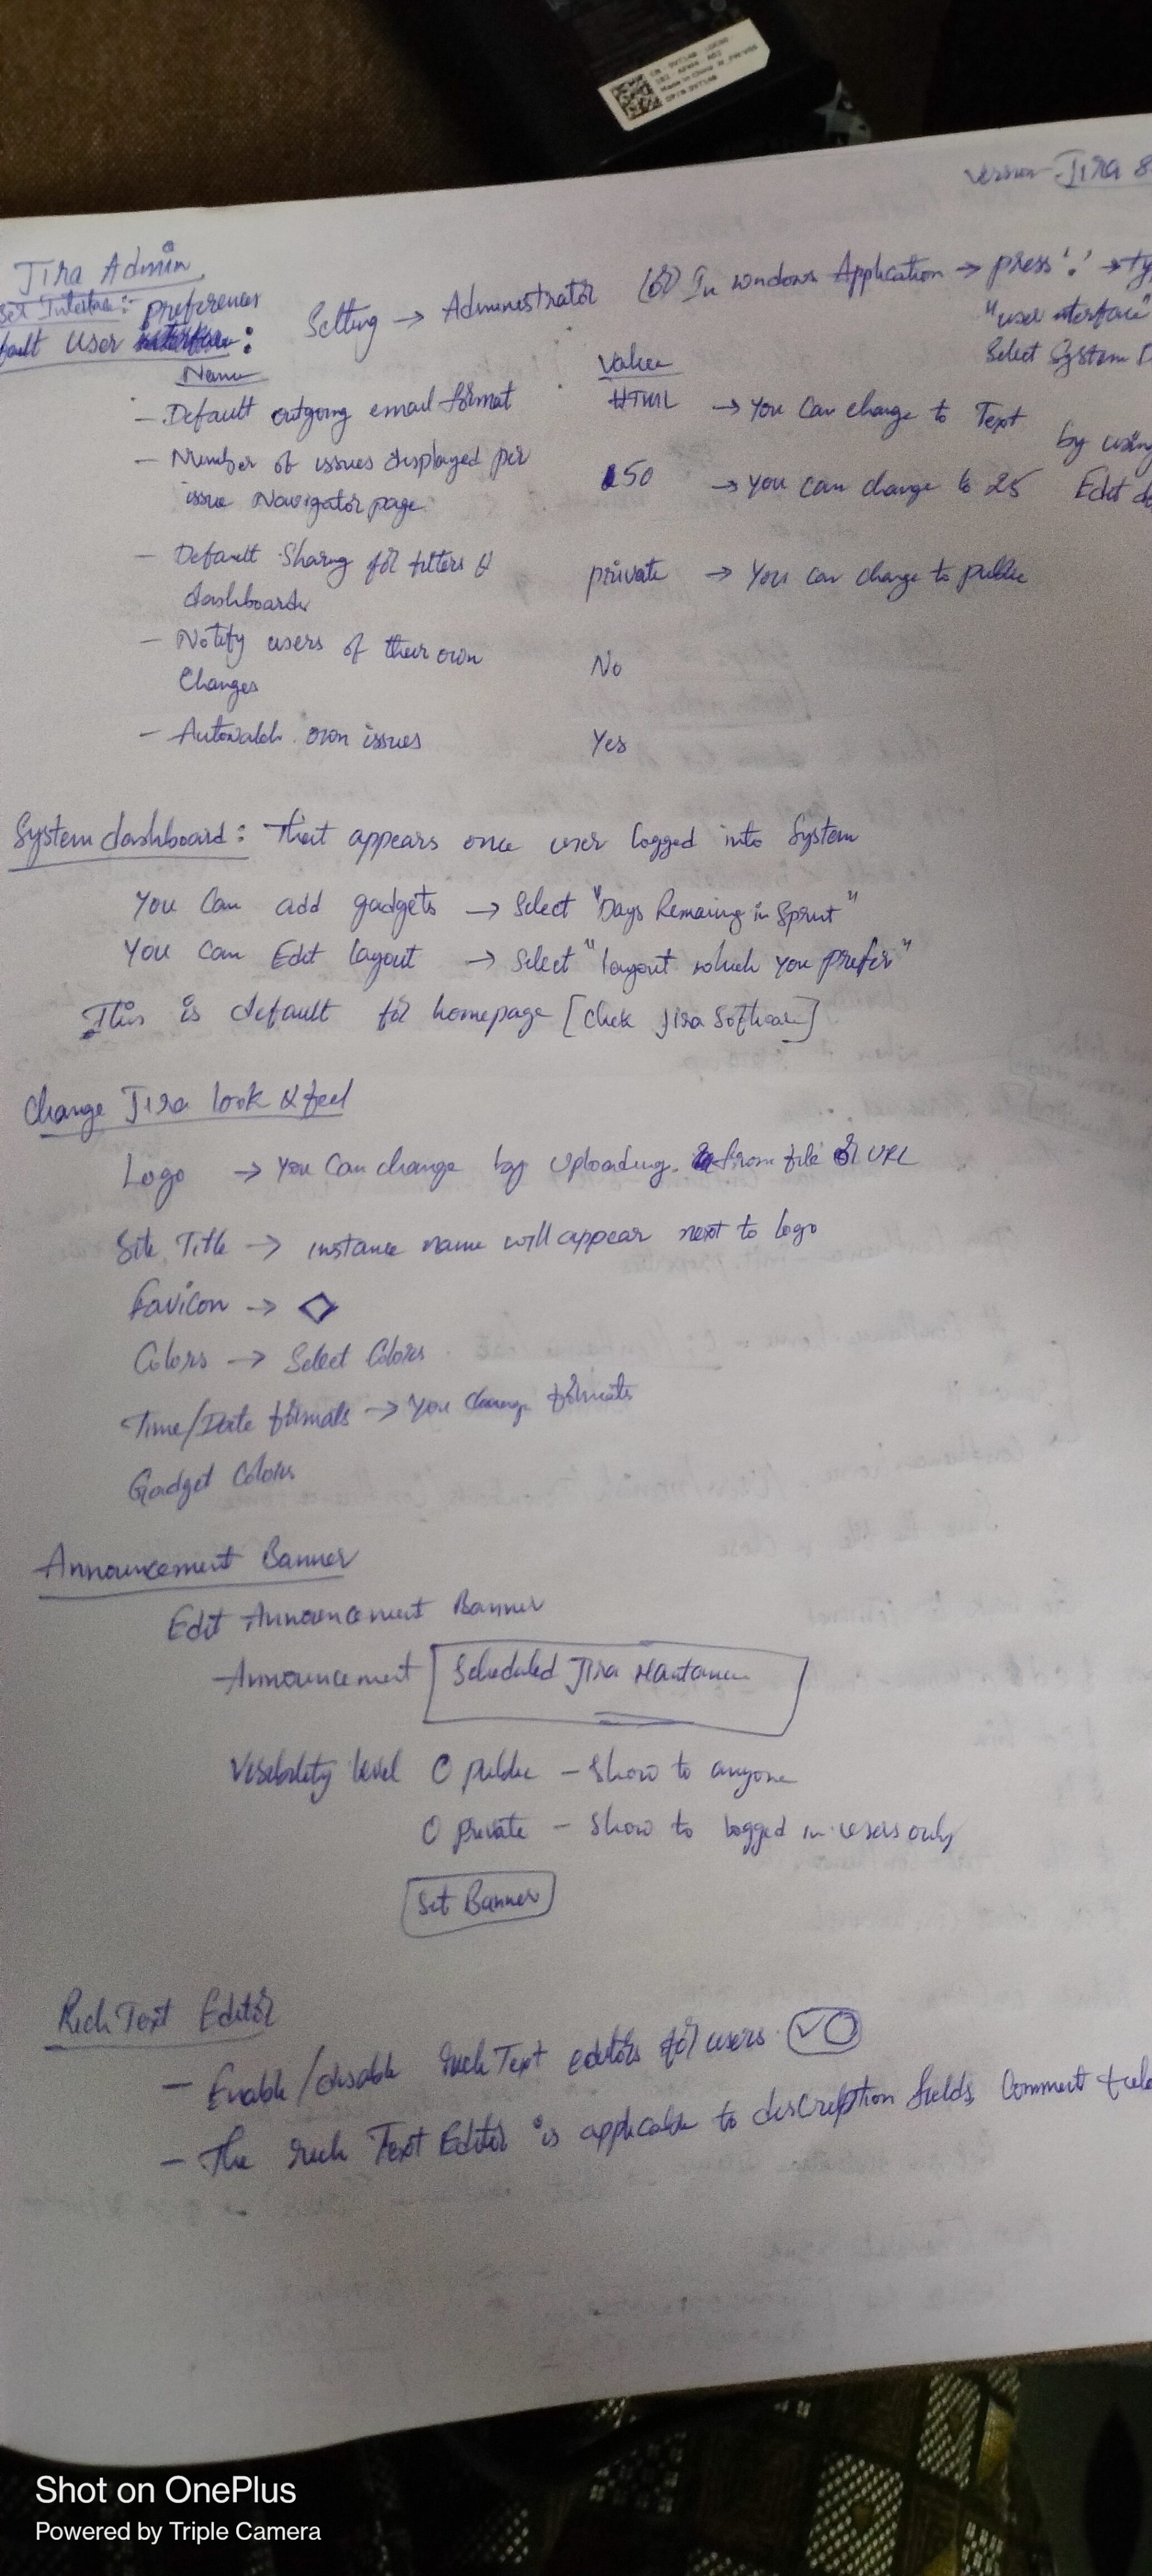 Version - Jira 8
Jira Admin
Set Interface:-
preferences
fault User :
Setting → Administrator (or) In windows Application → press '.' → ty
"user interface"
Select System D
Name
Value
- Default outgoing email format HTML → You can change to Text
by using
- Number of issues displayed per
issue Navigator page 50 → You can change to 25 Edit de
- Default Sharing for filters &
dashboards private → You can change to public
- Notify users of their own
Changes No
- Autowatch own issues Yes
System dashboard: That appears once user logged into System
You can add gadgets → Select "Days Remaining in Sprint"
You can Edit layout → Select "layout which you prefer"
This is default for homepage [Click Jira Software]
Change Jira look & feel
Logo → You can change by uploading from file or URL
Site Title → instance name will appear next to logo
Favicon →
Colors → Select Colors
Time/Date formats → You change formats
Gadget Colors
Announcement Banner
Edit Announcement Banner
Announcement Scheduled Jira
Visibility level O public - Show to anyone
O private - Show to logged in users only
Set Banner
Rich Text Editor
- Enable/disable rich Text editors for users
- The rich Text Editor is applicable to description fields, Comment
Shot on OnePlus
Powered by Triple Camera